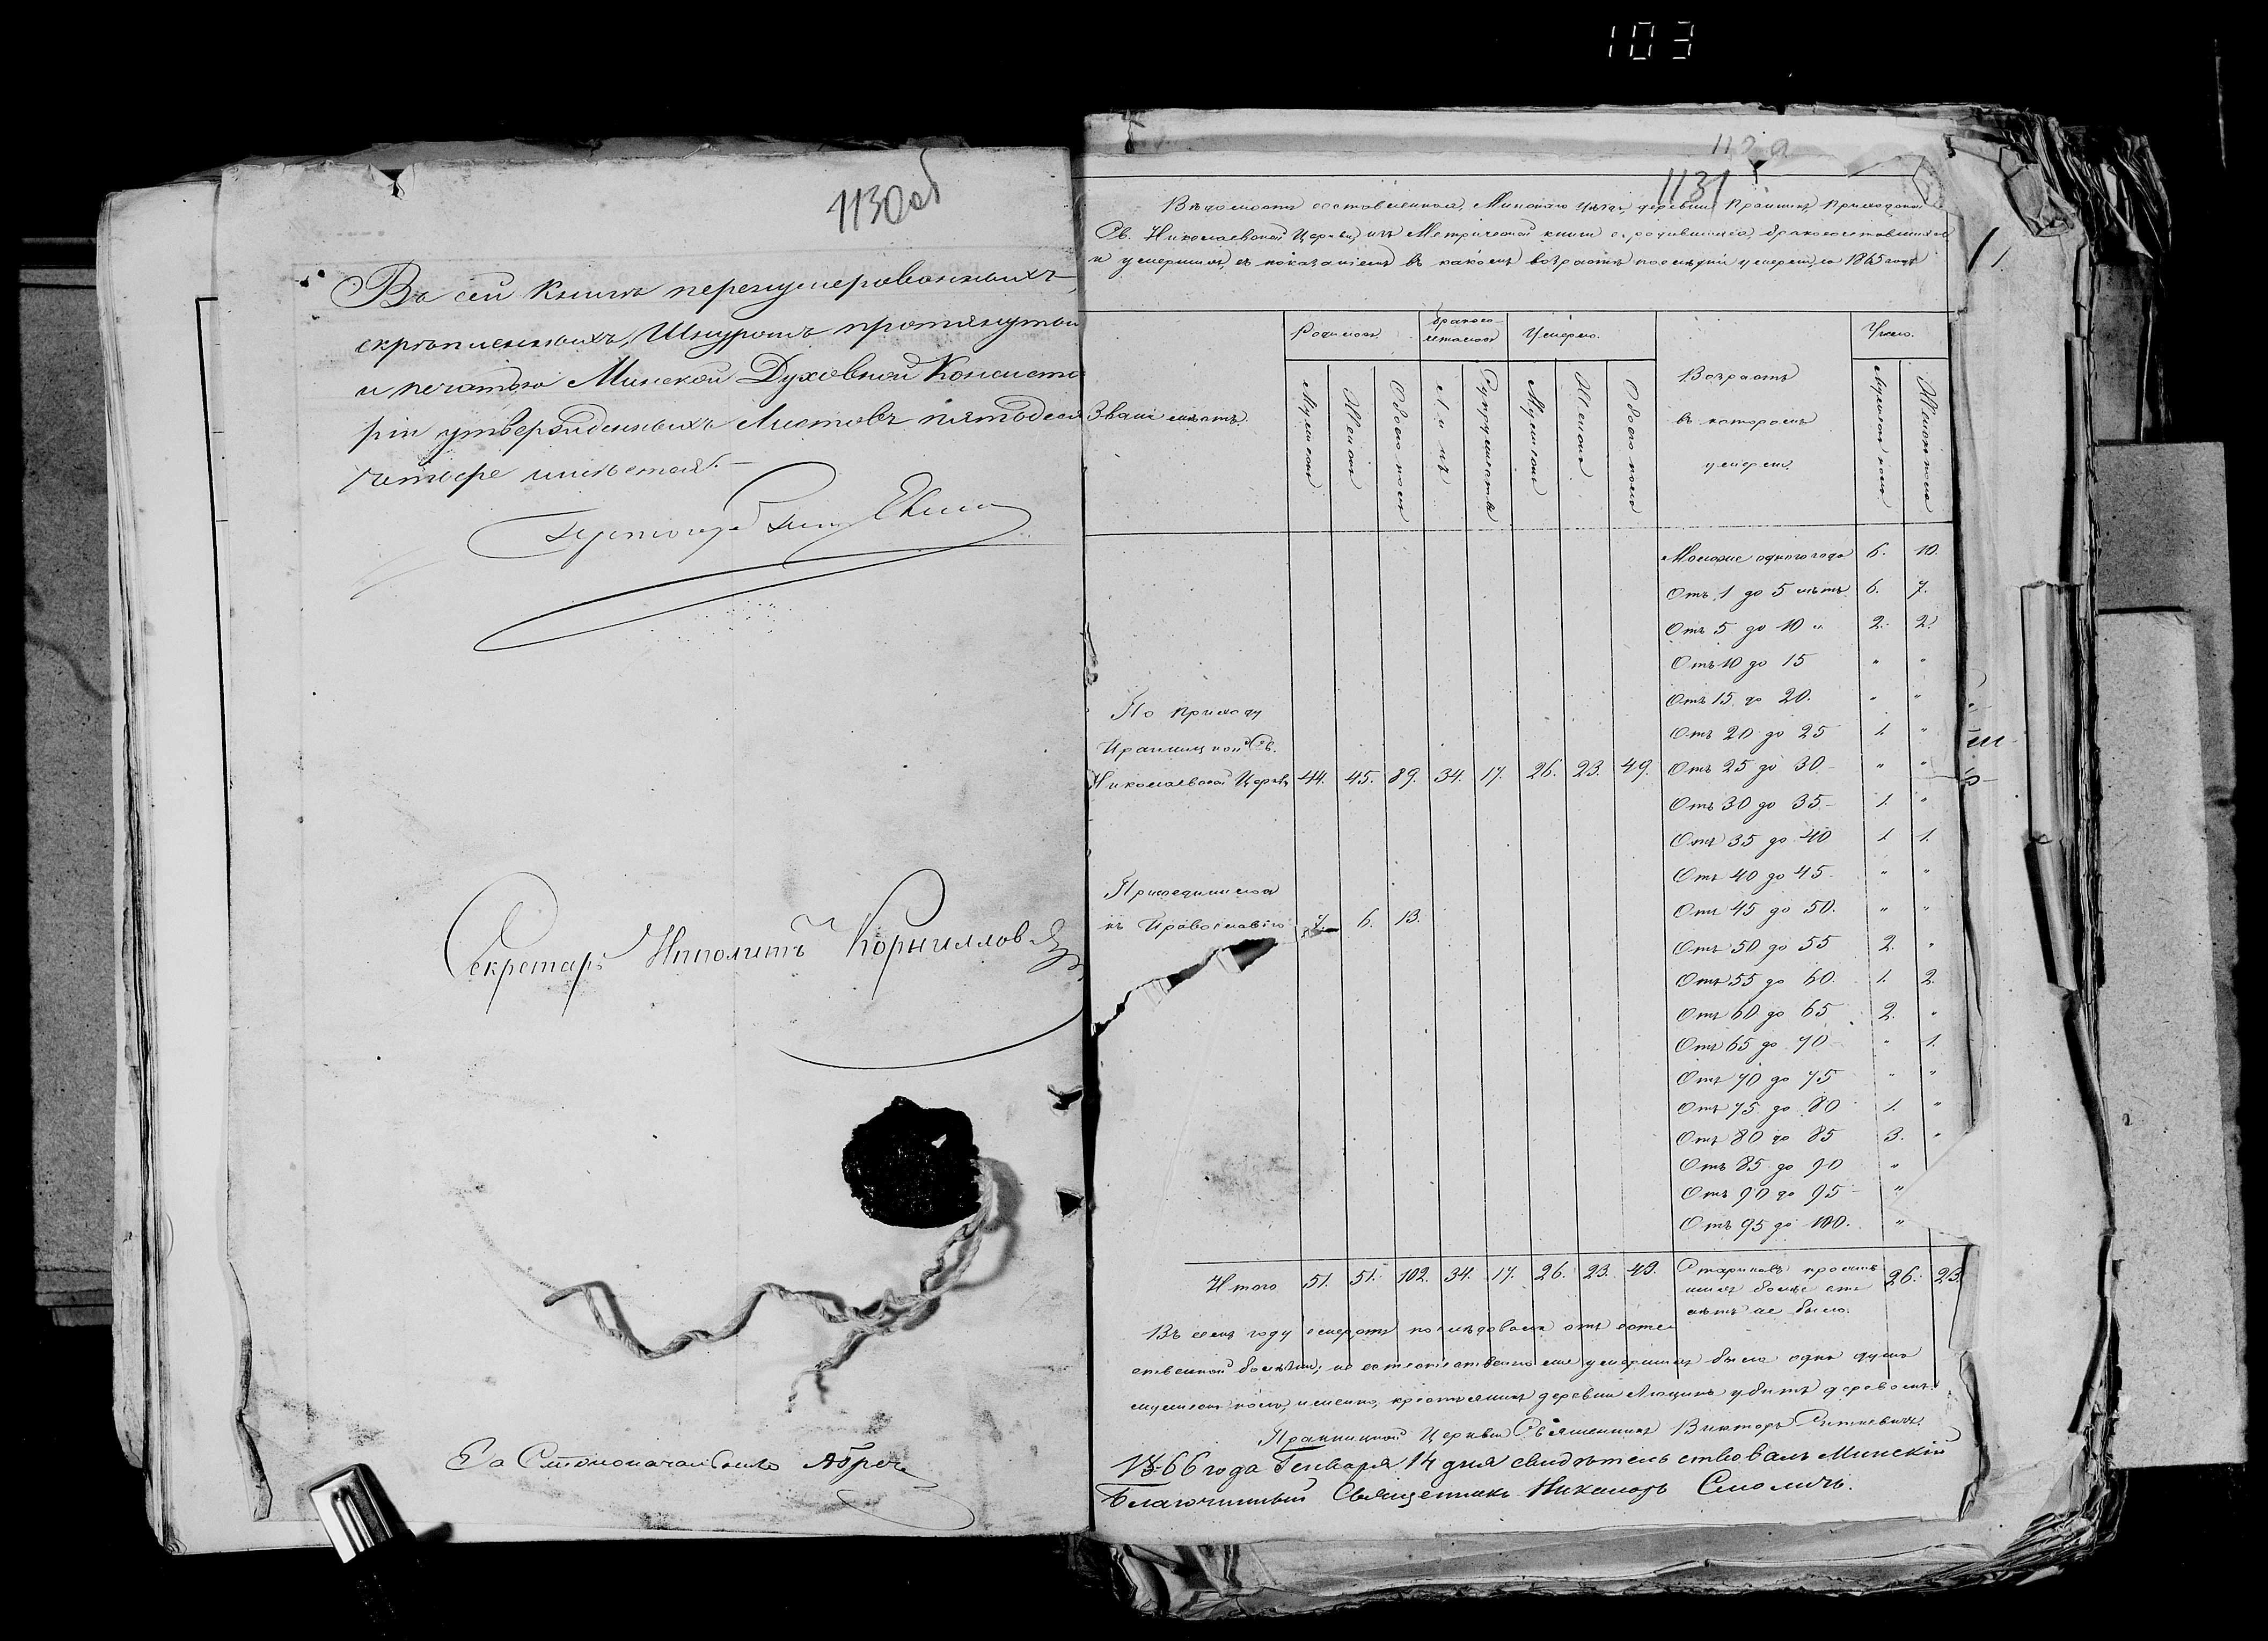 103
1130об
Въ сей Книгѣ перенумерованныхъ,
скрѣпленныхъ, Шнуромъ протянутых
и печатью Минской Духовной Консисто
ріи утвержденныхъ Листовъ пятьдеся
четыре
Секретарь Ипполитъ Корниллов
За Столоначальника
1131
Вѣдомость составленная, Минскаго уѣзда, деревни Приходской
Св. Николаевской Церкви, изъ Метрической книги о родившихся, бракосочетавшихся
и умершихъ, съ показаніемъ въ какомъ возрастѣ послѣдніи умерли, за 1865 годъ
Родилось. Бракосо- Умерло. Число.
четалось
Званіе мѣстъ. Мужеска Женска Обоего пола Лицъ Супружествъ Мужеска Женска Обоего пола Возрастъ Мужеска пола Женска пола
въ которомъ
умерли.
Моложе одного года 6. 10.
Отъ 1 до 5 лѣтъ 6. 7.
Отъ 5 до 10 " 2. 2.
Отъ 10 до 15 " "
Отъ 15 до 20. " "
Отъ 20 до 25 1. "
Отъ 25 до 30 " "
Отъ 30 до 35 1. "
Отъ 35 до 40 1. 1.
Отъ 40 до 45 " "
Отъ 45 до 50. " "
Отъ 50 до 55 2. "
Отъ 55 до 60. 1. 2.
Отъ 60 до 65 2. "
Отъ 65 до 70 " 1.
Отъ 70 до 75 " "
Отъ 75 до 80 1. "
Отъ 80 до 85 3. "
Отъ 85 до 90 "
Отъ 90 до 95 "
Отъ 95 до 100. "
По приходу
Св.
Николаевской Церкви 44. 45. 89. 34. 17. 26. 23. 49.
Присоединилось
къ Православію 7. 6. 13.
Итого 51. 51. 102. 34. 17. 26. 23. 49. Стариковъ прожив 26. 23.
шихъ болѣе ста
лѣтъ не было.
Въ семъ году смерть послѣдовала отъ есте
ственной болѣзни; не естественно же умершихъ была одна душа
мужеска пола, именно, крестьянинъ деревни убитъ деревомъ.
Церкви Священникъ Викторъ
1866 года Генваря 14 дня свидѣтельствовалъ Минскій
Благочинный Священникъ Никаноръ Смоличъ.